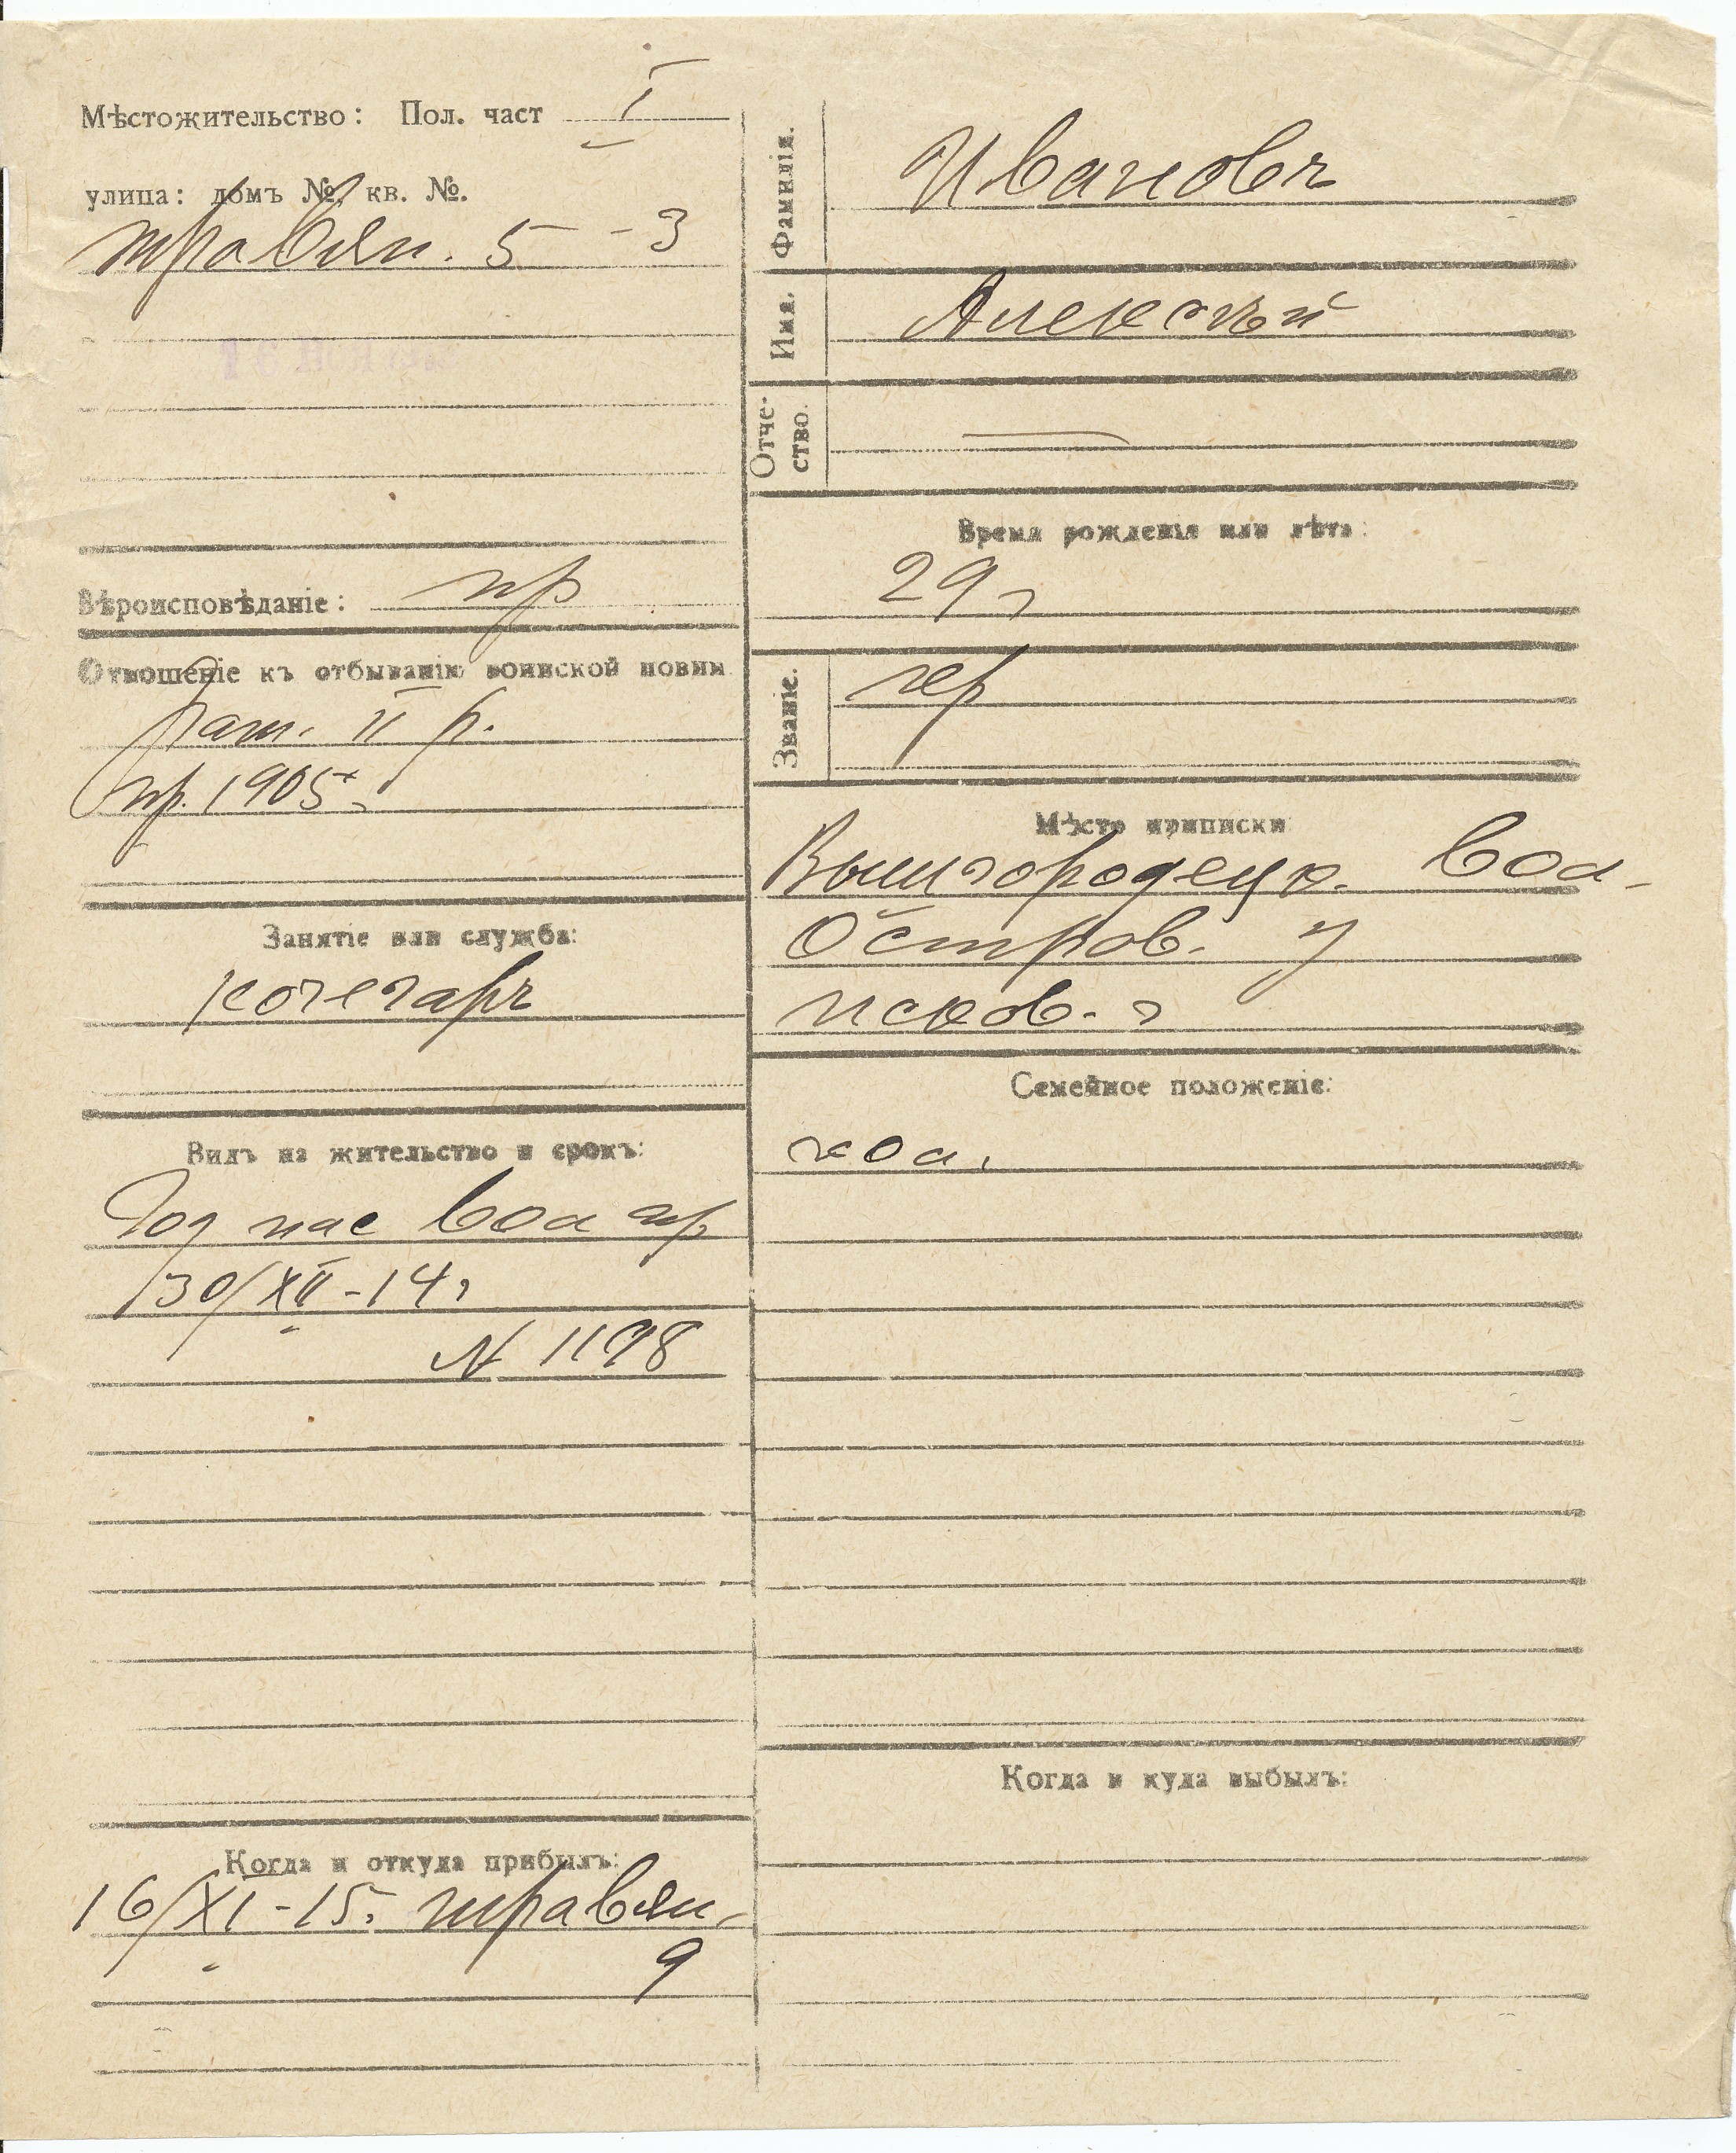 Мѣстожительство: Пол. част I
улица: домъ №, кв. №.
Травян. 5 - 3
Вѣроисповѣданіе: пр
Отношеніе къ отбыванію воинской повин
рат. II р.
пр. 1905 г
Занятіе или служба:
кочегаръ
Видъ на жительство и срокъ:
Год пас вол пр
30/XII - 14 г
N 1198
Когда и откуда прибылъ:
16/XI - 15 г. Травян.
9
Фамилія. Ивановъ
Имя. Алексѣй
Отче-
ство.
Время рожденія или лѣта:
29 г
Званіе. кр
Мѣсто приписки
Вышгородецк. вол.
Остров. у
Псков. г
Семейное положеніе:
хол.
Когда и куда выбылъ: